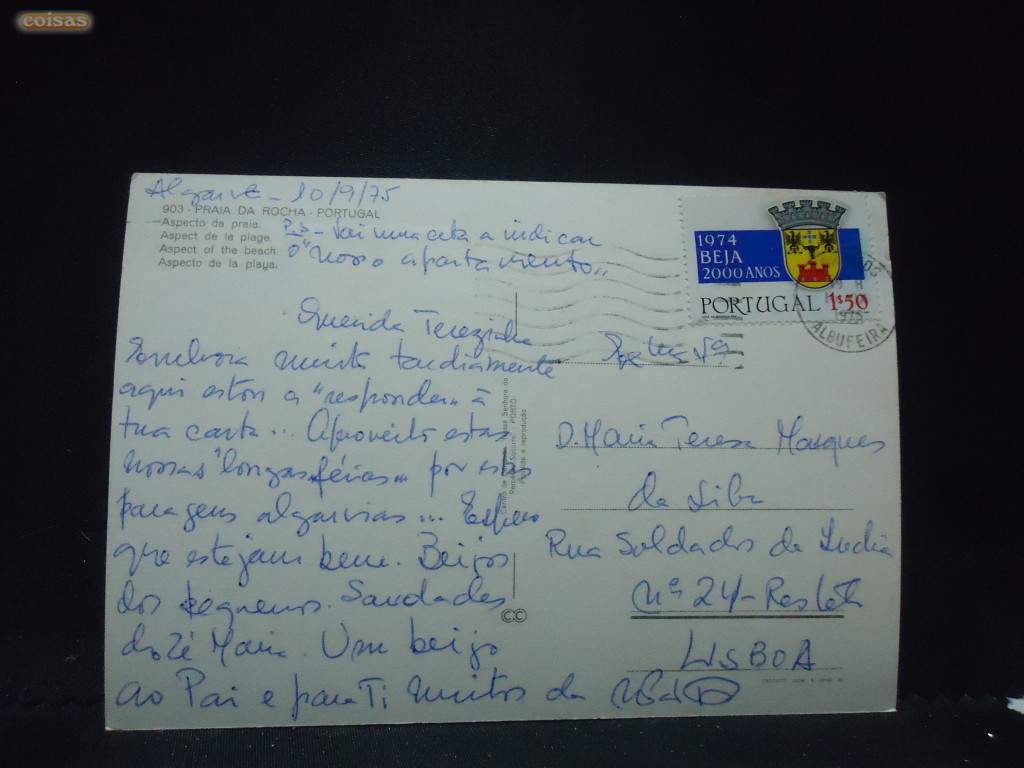 coisas
Algarve - 10/9/75
903 - PRAIA DA ROCHA - PORTUGAL
Aspecto da praia.
Aspect de la plage.
Aspect of the beach.
Aspecto de la playa.
P.S - Vai uma seta a indicar
o "nosso apartamento"
1974
BEJA
2000 ANOS
PORTUGAL 1$50
1975
ALBUFEIRA
Querida Terezinha
Embora muito tardiamente
aqui estou a "responder" à
tua carta... Aproveito estas
nossas "longas férias" por estas
paragens algarvias... Espero
que estejam bem. Beijos
dos pequenos. Saudades
do Zé Maria. Um beijo
ao Pai e para Ti muitos da
D. Maria Teresa Marques
da Silva
Rua Soldados da India
nº 24 - Restelo
LISBOA